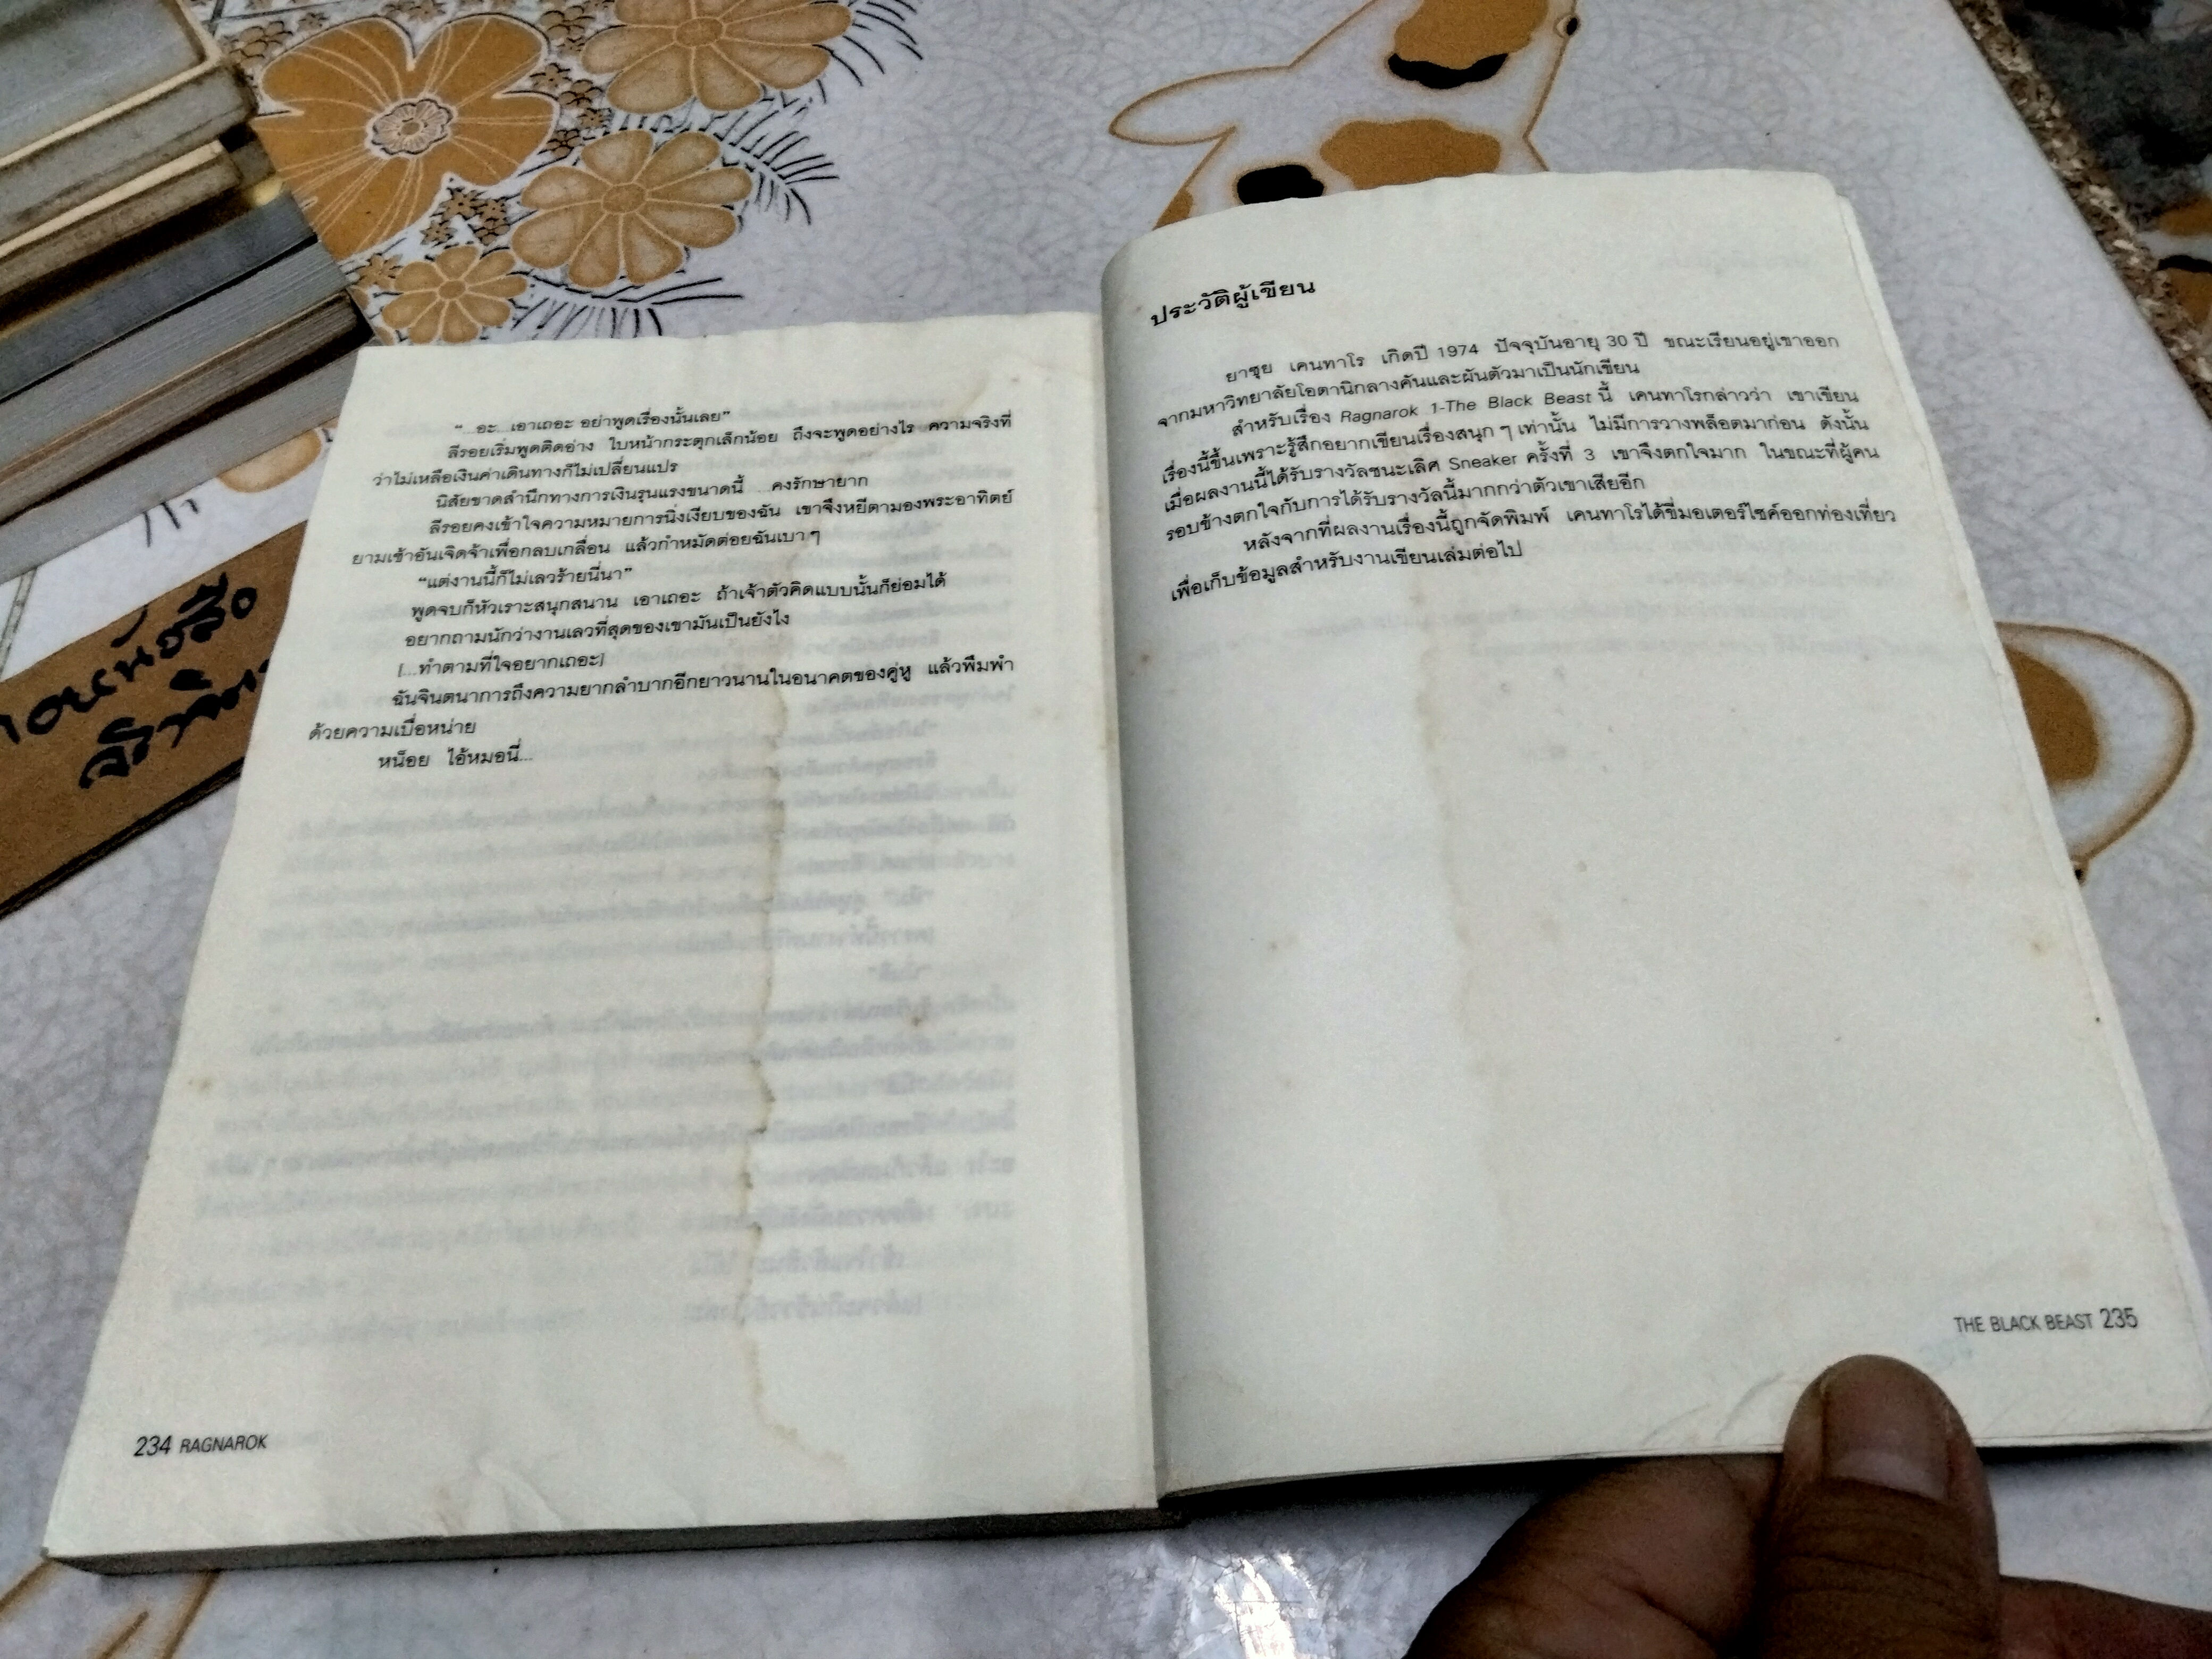 “...อะ...เอาเถอะ อย่าพูดเรื่องนั้นเลย”
ลีรอยเริ่มพูดติดอ่าง ใบหน้ากระตุกเล็กน้อย ถึงจะพูดอย่างไร ความจริงที่
ว่าไม่เหลือเงินค่าเดินทางก็ไม่เปลี่ยนแปร
นิสัยขาดสำนึกทางการเงินรุนแรงขนาดนี้ ...คงรักษายาก
ลีรอยคงเข้าใจความหมายการนิ่งเงียบของฉัน เขาจึงหยีตามองพระอาทิตย์
ยามเช้าอันเจิดจ้าเพื่อกลบเกลื่อน แล้วกำหมัดต่อยฉันเบา ๆ
“แต่งานนี้ก็ไม่เลวร้ายนี่นา”
พูดจบก็หัวเราะสนุกสนาน เอาเถอะ ถ้าเจ้าตัวคิดแบบนั้นก็ย่อมได้
อยากถามนักว่างานเลวที่สุดของเขามันเป็นยังไง
(...ทำตามที่ใจอยากเถอะ)
ฉันจินตนาการถึงความยากลำบากอีกยาวนานในอนาคตของคู่หู แล้วพึมพำ
ด้วยความเบื่อหน่าย
หน็อย ไอ้หมอนี่...
234 RAGNAROK
ประวัติผู้เขียน
ยาซุย เคนทาโร เกิดปี 1974 ปัจจุบันอายุ 30 ปี ขณะเรียนอยู่เขาออก
จากมหาวิทยาลัยโอตานิกลางคันและผันตัวมาเป็นนักเขียน
สำหรับเรื่อง Ragnarok 1-The Black Beast นี้ เคนทาโรกล่าวว่า เขาเขียน
เรื่องนี้ขึ้นเพราะรู้สึกอยากเขียนเรื่องสนุก ๆ เท่านั้น ไม่มีการวางพล็อตมาก่อน ดังนั้น
เมื่อผลงานนี้ได้รับรางวัลชนะเลิศ Sneaker ครั้งที่ 3 เขาจึงตกใจมาก ในขณะที่ผู้คน
รอบข้างตกใจกับการได้รับรางวัลนี้มากกว่าตัวเขาเสียอีก
หลังจากที่ผลงานเรื่องนี้ถูกจัดพิมพ์ เคนทาโรได้ขี่มอเตอร์ไซค์ออกท่องเที่ยว
เพื่อเก็บข้อมูลสำหรับงานเขียนเล่มต่อไป
THE BLACK BEAST 235